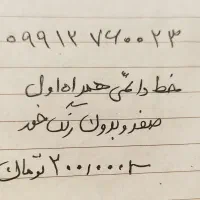 ۰۹۹۱۲۷۶۰۰۲۳
خط دائمی همراه اول
صفر و بدون رنگ خور
۲۰۰/۰۰۰ تومان